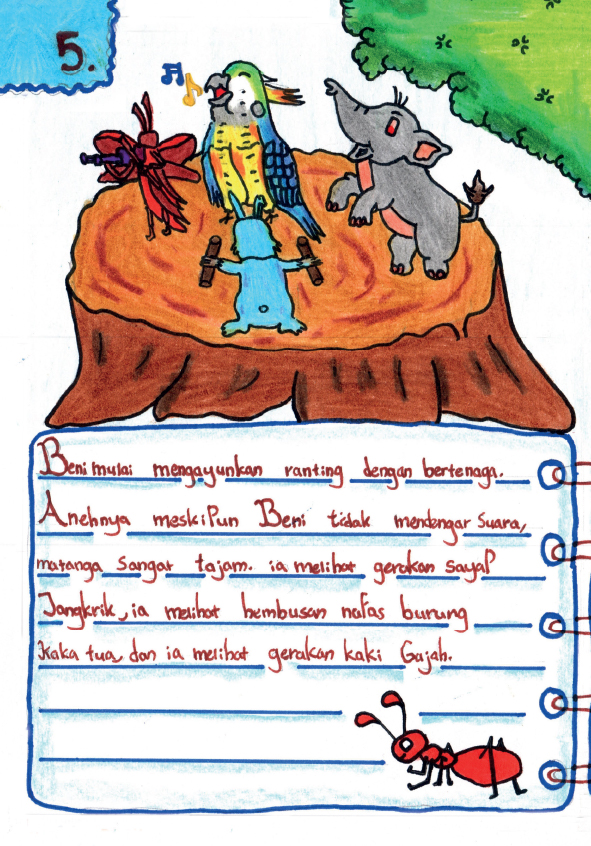 5.
Beni mulai mengayunkan ranting dengan bertenaga.
Anehnya meskipun Beni tidak mendengar suara,
matanga sangat tajam. ia melihat gerakan sayap
Jangkrik, ia melihat hembusan nafas burung
Kaka tua, dan ia melihat gerakan kaki Gajah.